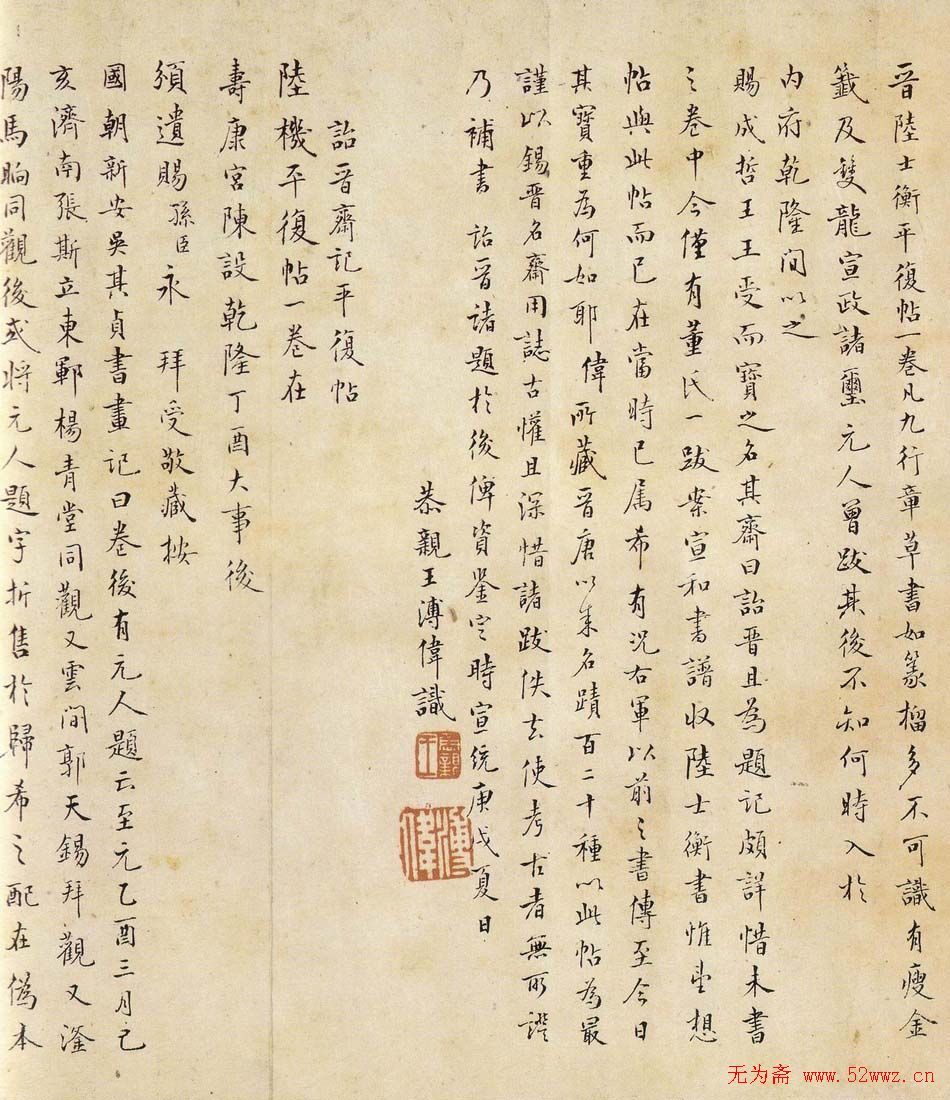 晉陸士衡平復帖一卷凡九行章草書如篆籀多不可識有瘦金
籤及雙龍宣政諸璽元人曾跋其後不知何時入於
内府乾隆間以之
賜成哲王王受而寶之名其齋曰詒晉且為題記頗詳惜未書
之卷中今僅有董氏一跋案宣和書譜收陸士衡書惟
想
帖與此帖而已在當時已属希有況右軍以前之書傳至今日
其寶重為何如耶偉所藏晉唐以來名蹟百二十種以此帖為最
謹以錫晉名齋用誌古懽且深惜諸跋佚去使考古者無所證
乃補書詒晉諸題於後俾資鉴定時宣統庚戌夏日
恭親王溥偉識
恭親
王
溥
偉
詒晉齋記平復帖
陸機平復帖一卷在
壽康宮陳設乾隆丁酉大事後
須遺賜孫臣永拜受敬藏按
國朝新安吳其貞書畫記曰卷後有元人題云至元乙酉三月己
亥濟南張斯立東鄆楊青堂同觀又雲間郭天錫拜觀又滏
陽馬昫同觀後或将元人題字折售於歸希之配在僞本
无为斋 www.52wwz.cn